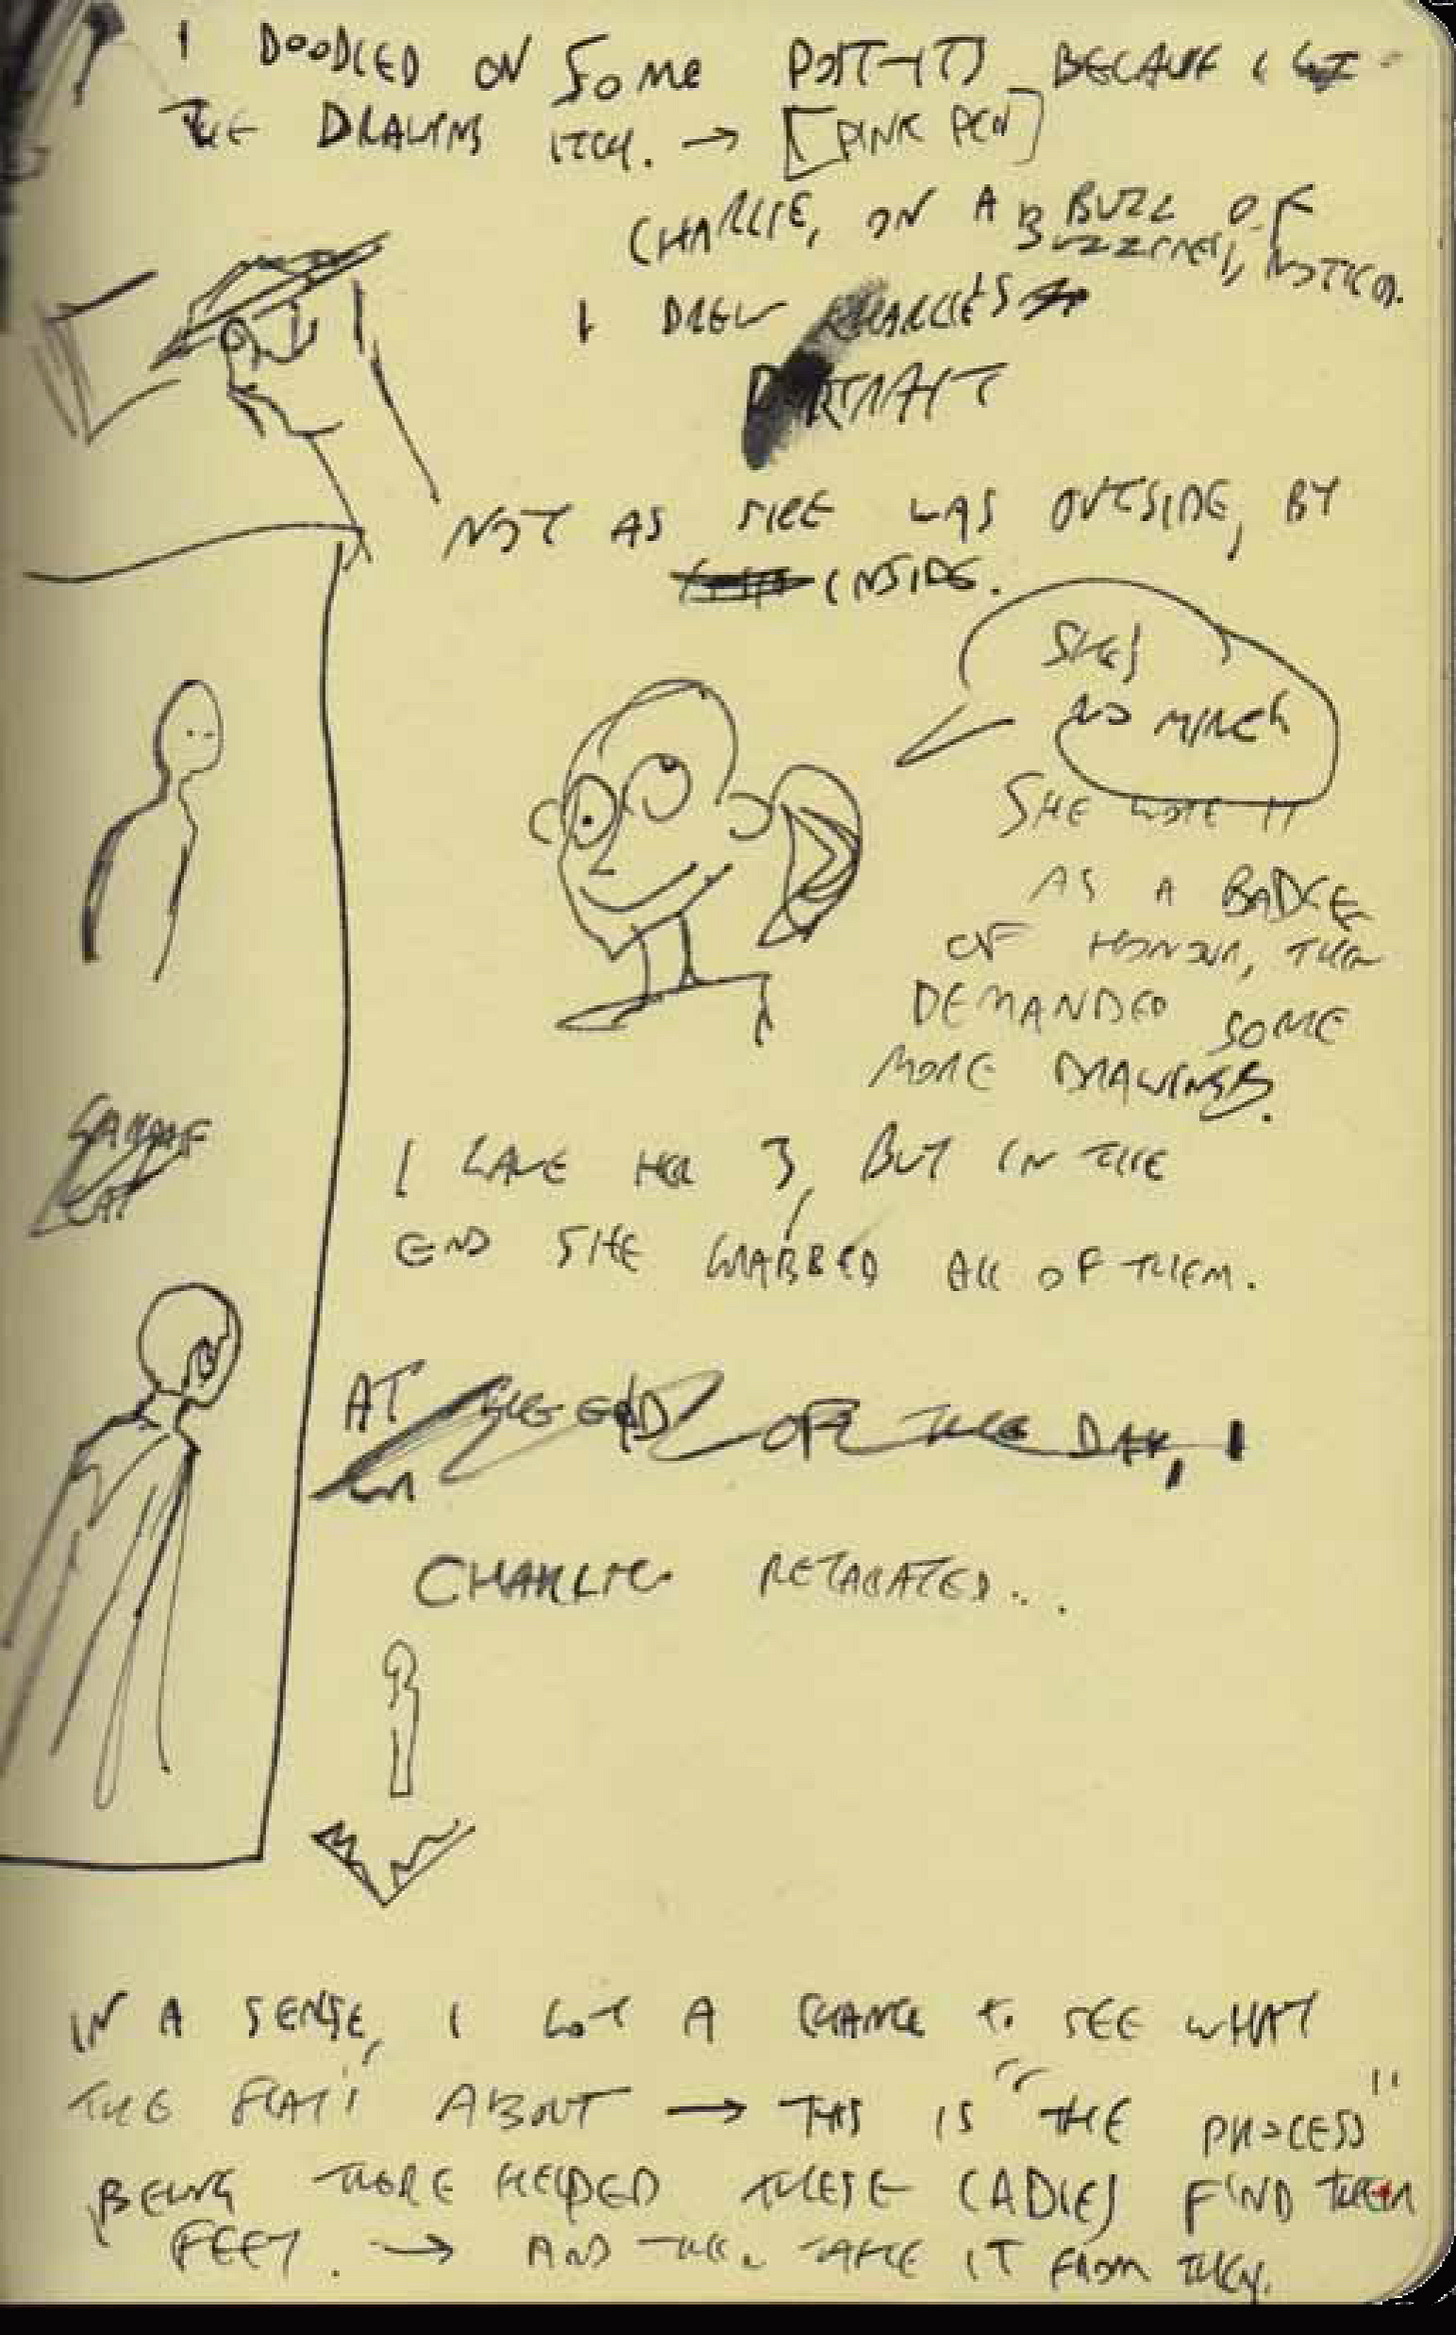 I DOODLED ON SOME POST-ITS BECAUSE I GOT
THE DRAWING ITCH. → [PINK PEN]
CHARLIE, ON A BUZZ OF
BUZZINESS, NOTICED.
I DREW CHARLIES
PORTRAIT
NOT AS SHE WAS OUTSIDE, BY
INSIDE.
SHES
NO MINCH
SHE WORE IT
AS A BADGE
OF HONOUR, THEN
DEMANDED SOME
MORE DRAWINGS.
I GAVE HER 3, BUT IN THE
END SHE GRABBED ALL OF THEM.
AT THE END OF THE DAY, I
CHARLIE
IN A SENSE, I GOT A CHANCE TO SEE WHAT
THE FLAT'S ABOUT → THIS IS "THE PROCESS"
BEING THERE HELPED THESE LADIES FIND THEIR
FEET. → AND THEN TAKE IT FROM THEM.